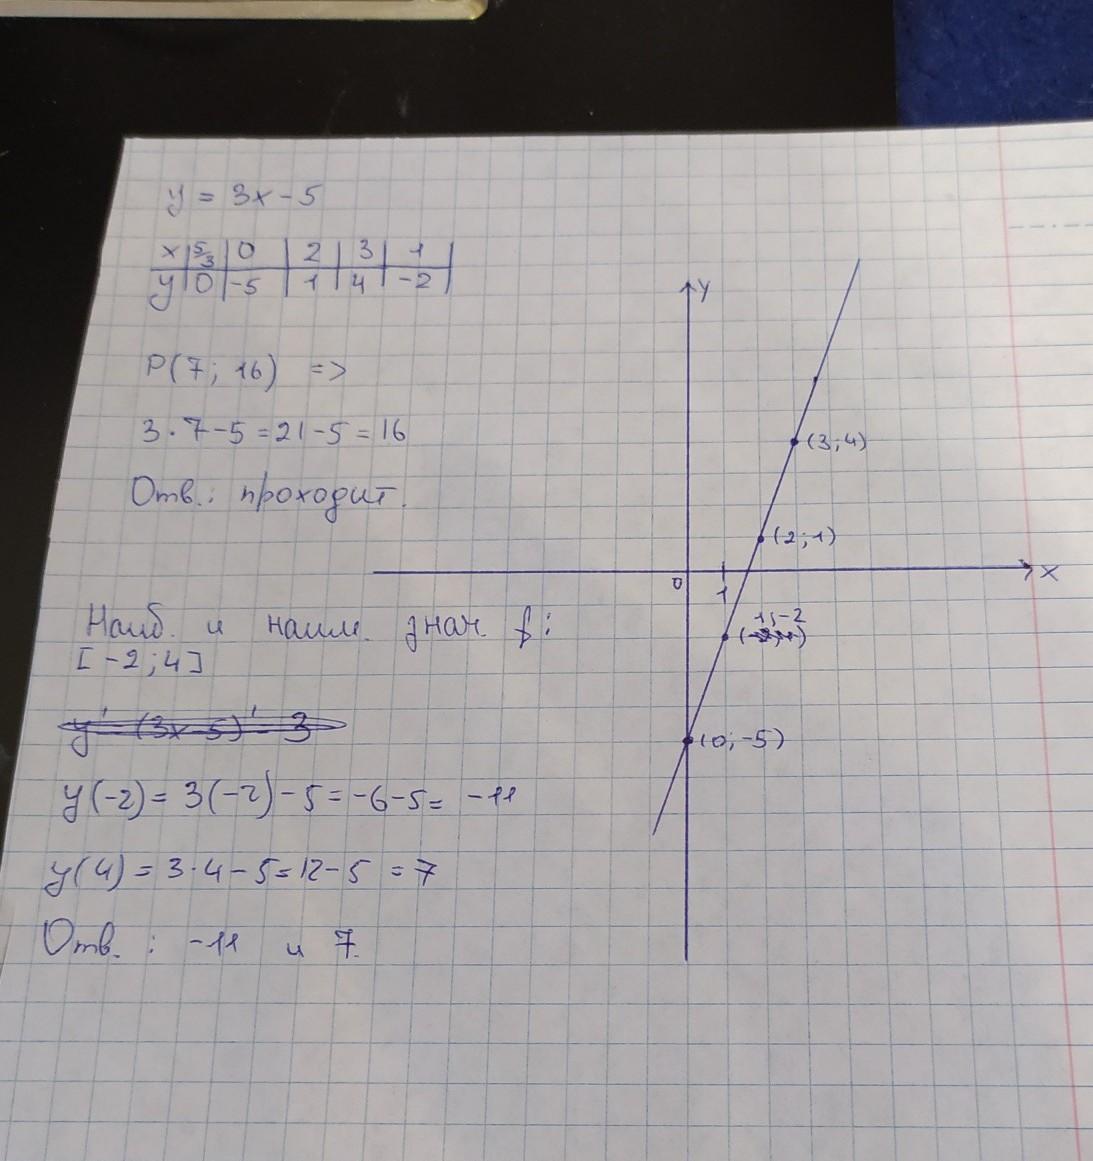 y = 3x - 5
x | 5/3 | 0 | 2 | 3 | 1
y | 0 | -5 | 1 | 4 | -2
P(7; 16) =>
3·7-5=21-5=16
Отв.: проходит.
Наиб. и наим. знач. f:
[-2;4]
y' = (3x-5)' = 3
y(-2) = 3(-2)-5=-6-5= -11
y(4) = 3·4-5=12-5 = 7
Отв. : -11 и 7.
y
(3;4)
(2;1)
0
1
x
1;-2
(0;-5)